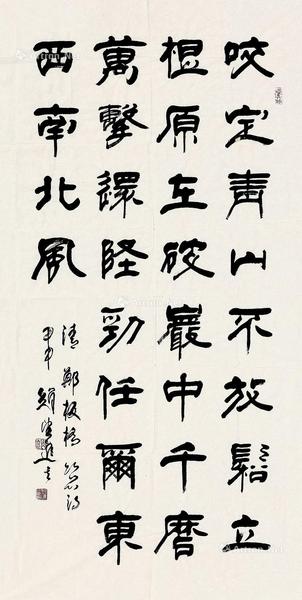 咬定青山不放鬆立
根原在破巖中千磨
萬擊還堅勁任爾東
西南北風
清鄭板橋竹石詩
甲申趙望進書